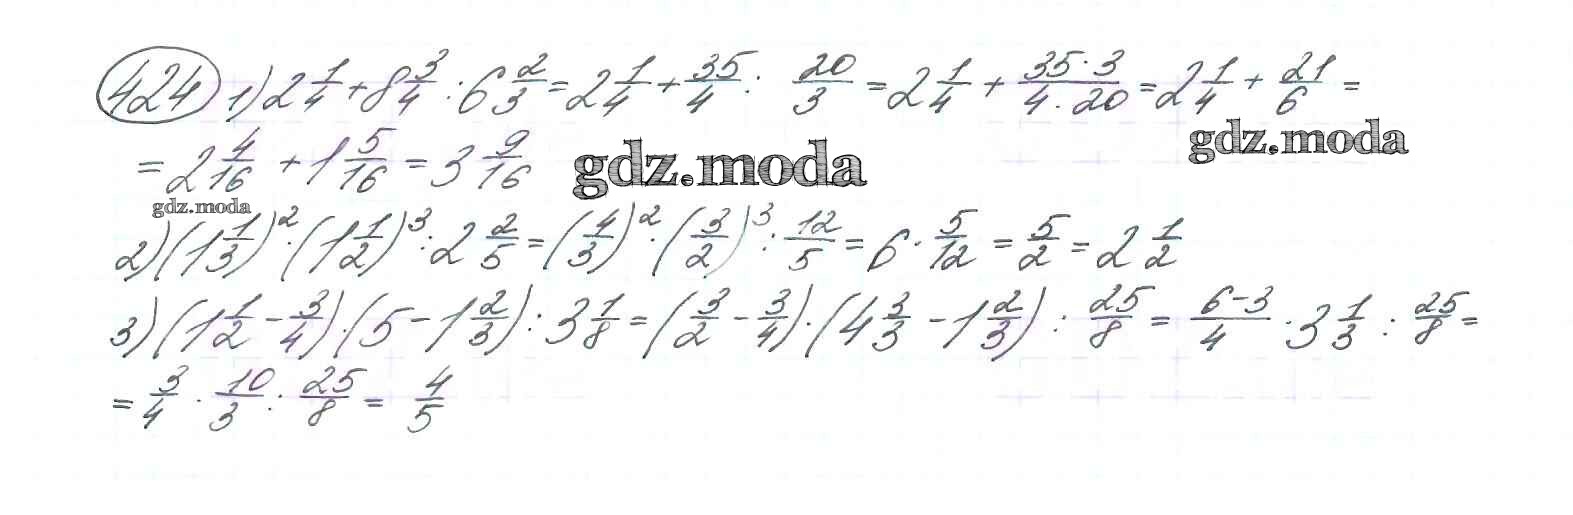 424 1) 2 1/4 + 8 3/4 : 6 2/3 = 2 1/4 + 35/4 : 20/3 = 2 1/4 + 35·3/4·20 = 2 1/4 + 21/6 =
gdz.moda
= 2 4/16 + 1 5/16 = 3 9/16
gdz.moda
gdz.moda
2) (1 1/3)² · (1 1/2)³ : 2 2/5 = (4/3)² · (3/2)³ : 12/5 = 6 · 5/12 = 5/2 = 2 1/2
3) (1 1/2 - 3/4) · (5 - 1 2/3) : 3 1/8 = (3/2 - 3/4) · (4 3/3 - 1 2/3) : 25/8 = 6-3/4 · 3 1/3 : 25/8 =
= 3/4 · 10/3 : 25/8 = 4/5